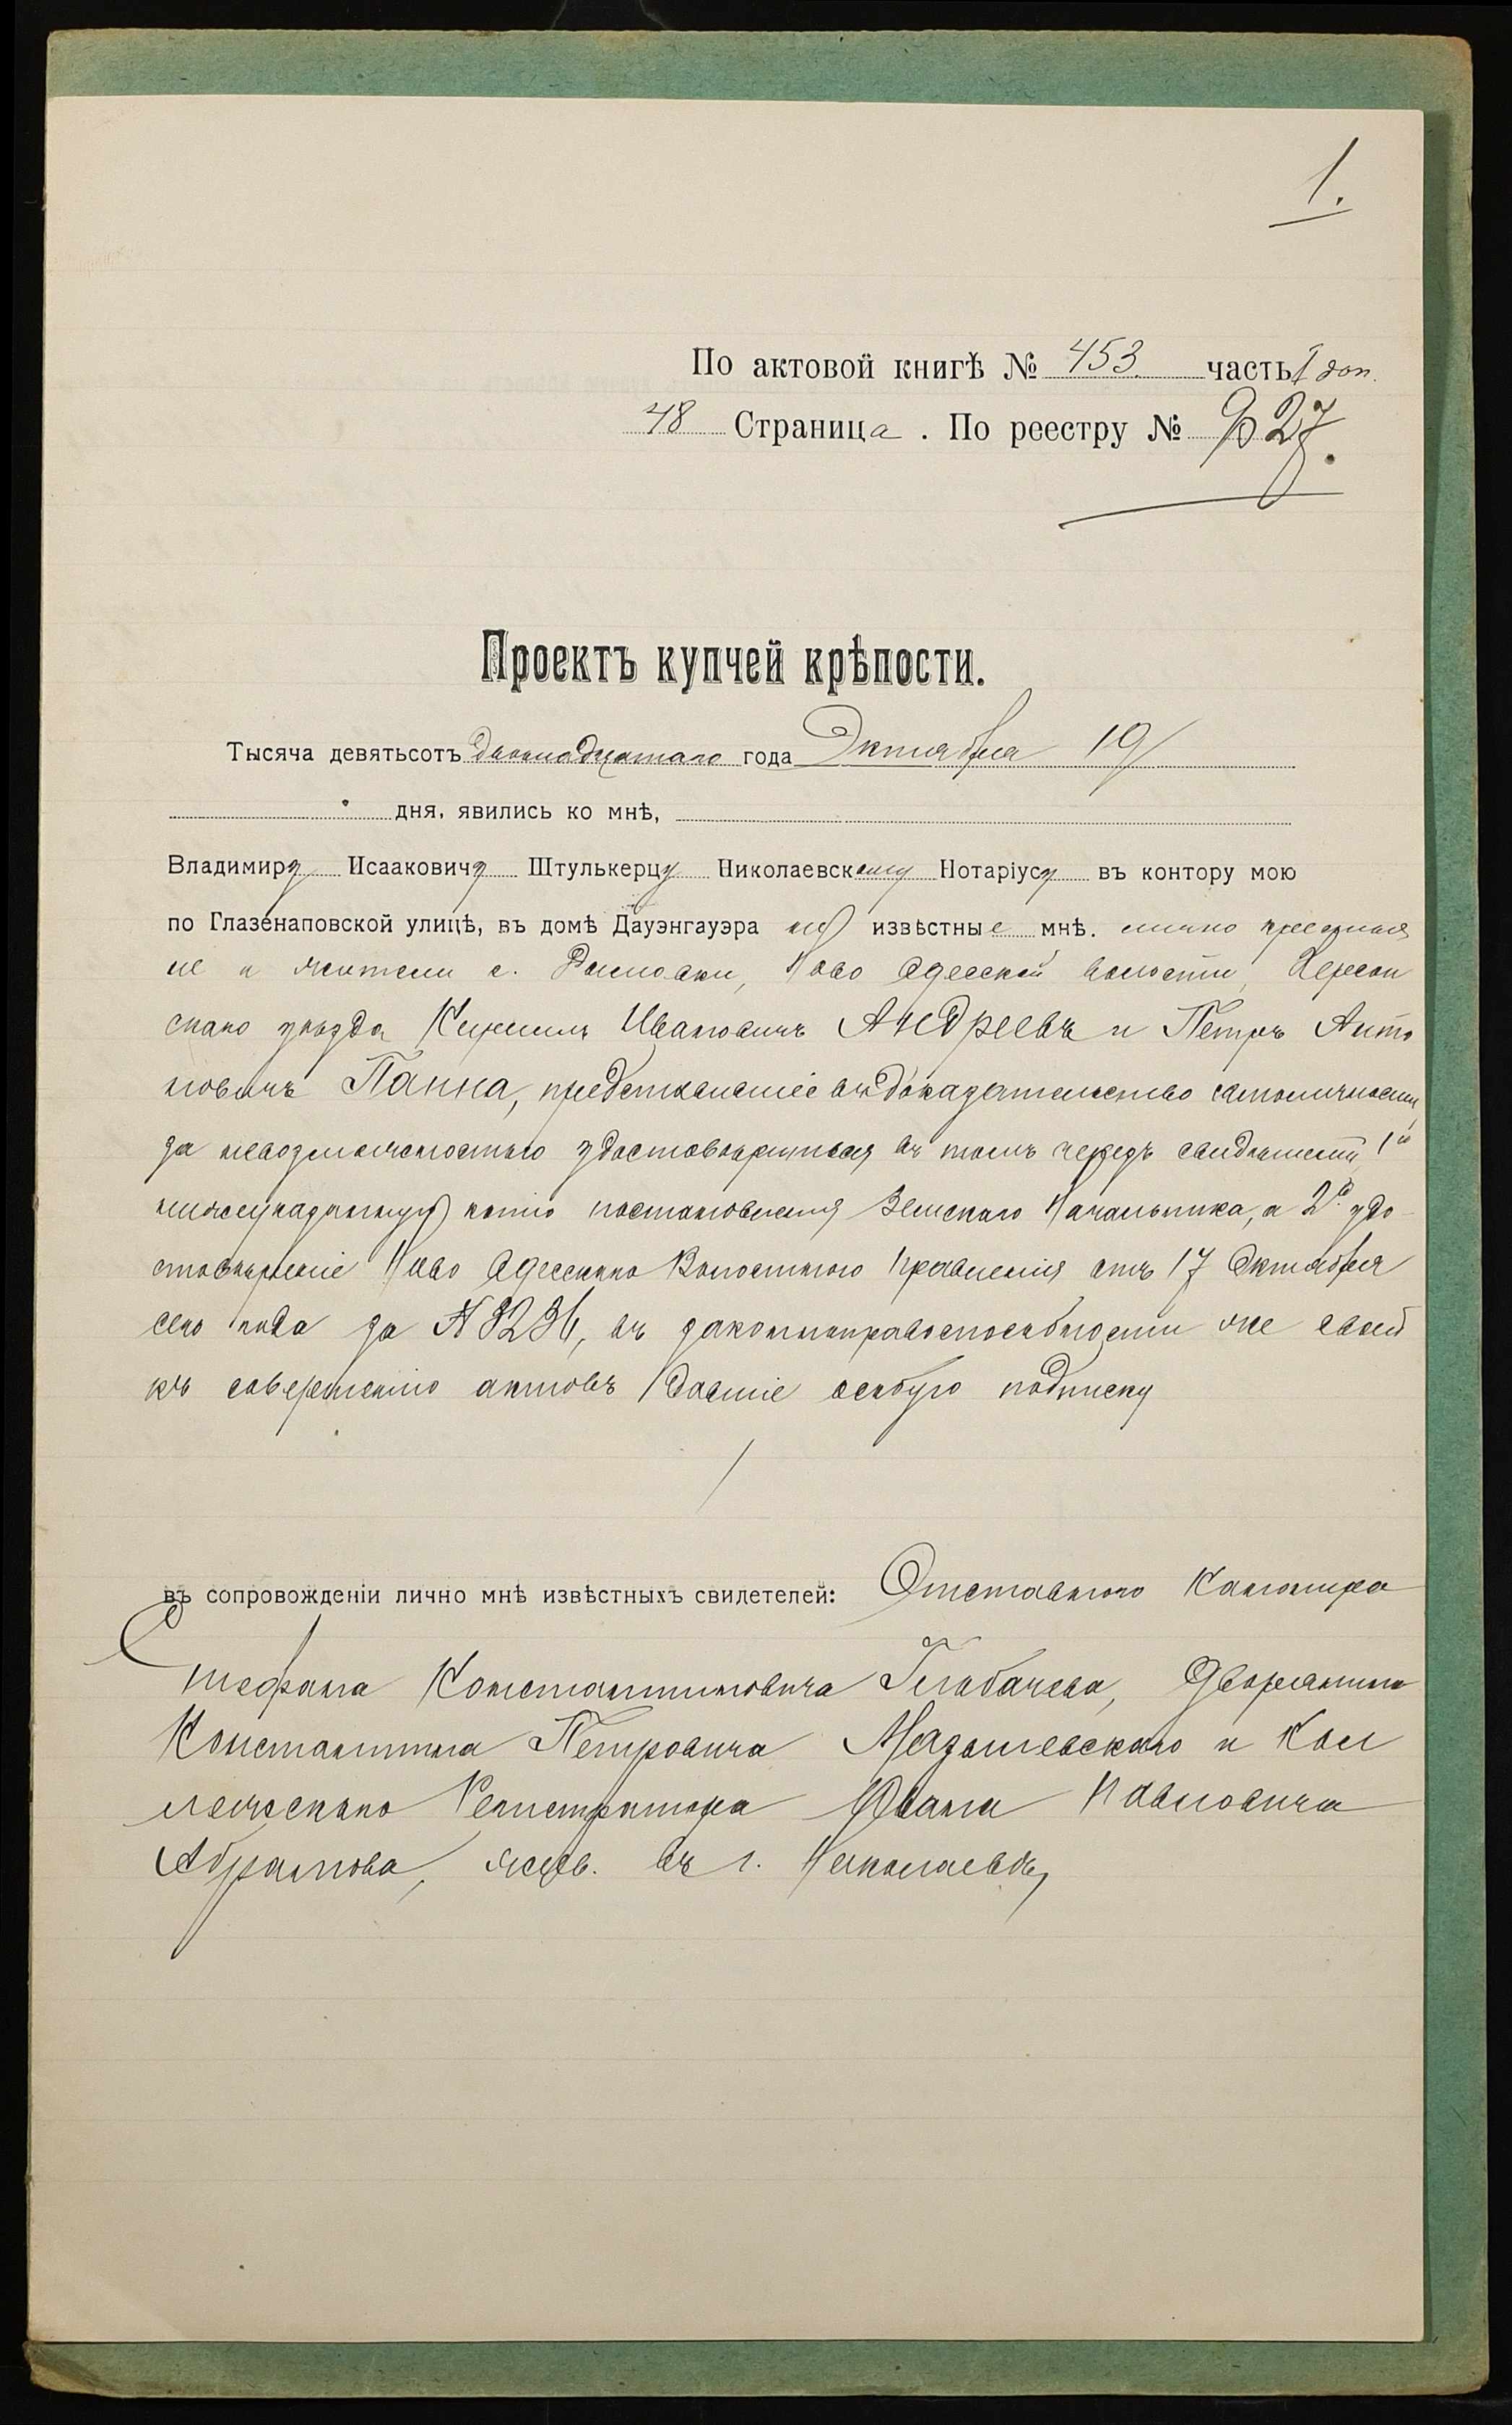 1.
По актовой книгѣ № 453 часть I доп.
48 Страница. По реестру №
Проектъ купчей крѣпости.
Тысяча девятьсотъ двѣнадцатаго года Октября 19
дня, явились ко мнѣ,
Владимиру Исааковичу Штулькерцу Николаевскому Нотаріусу въ контору мою
по Глазенаповской улицѣ, въ домѣ Дауэнгауэра не извѣстные мнѣ. лично крестьяня
не и жители с. Ново Одесской волости, Херсон
скаго уѣзда Кириллъ Ивановичъ Андреевъ и Петръ Анто
новичъ Панна, представившіе въ доказательство самоличности,
за невозможностью удостовѣриться въ томъ черезъ свидѣтелей, 1й
нижеуказанную копію постановленія Земскаго Начальника, а 2й удо
стовѣреніе Ново Одесскаго Волостного Правленія отъ 17 Октября
сего года за № 8236, въ законноправоспособности же своей
къ совершенію актовъ давшіе особую подписку
въ сопровожденіи лично мнѣ извѣстныхъ свидетелей: Отставного Канонира
Стефана Константиновича Глобачева, Дворянина
Константина Петровича и Кол
лежскаго Регистратора Ивана Павловича
Абрамова, жив. въ г. Николаевѣ,